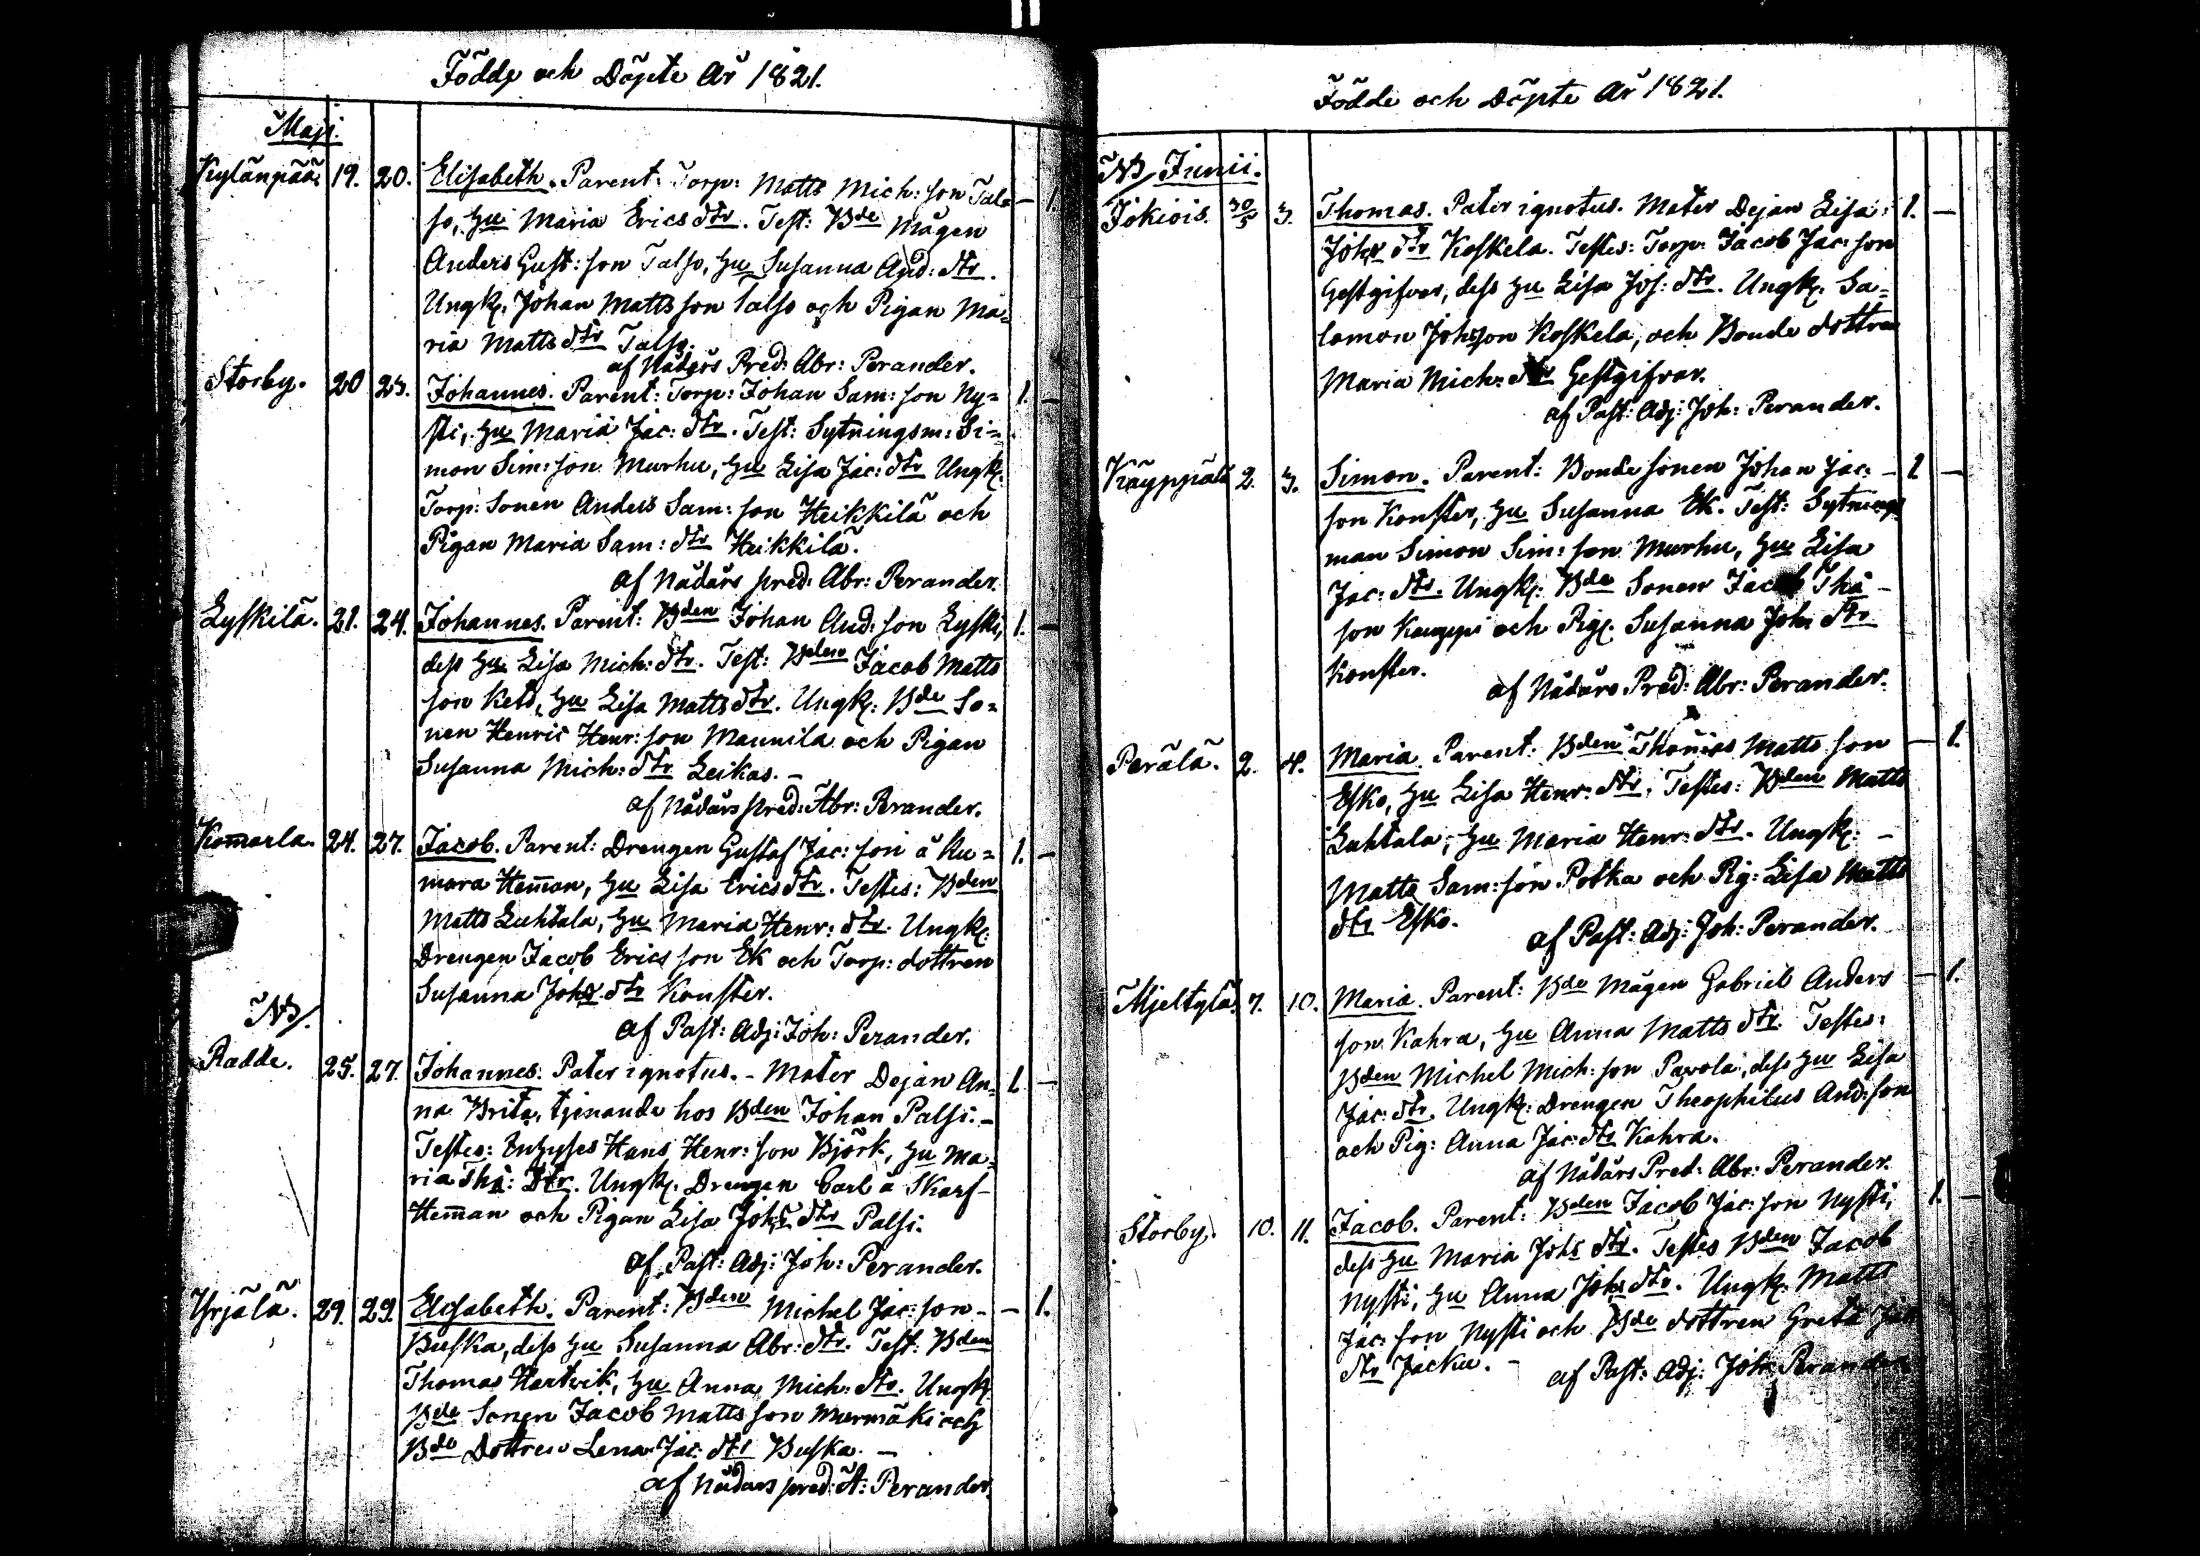 Födde och Döpte År 1821.
Maji.
Kylänpää. 19. 20. Elisabeth. Parent: Torp: Matts Mich: son Tal= — 1.
so, Hu Maria Ericsdtr. Test: Bde Mågen
Anders Gust: son Talso, Hu Susanna And: dtr.
Ungk. Johan Matts son Talso och Pigan Ma=
ria Matts dtr Talso.
af Nådårs Pred: Abr: Perander.
Storby. 20 23. Johannes. Parent: Torp: Johan Sam: son Ny= 1. —
sti, Hu Maria Jac: dtr. Test: Sytningsm: Si=
mon Sim: son Murhu, Hu Lisa Jac: dtr Ungk.
Torp: Sonen Anders Sam: son Heikkilä och
Pigan Maria Sam: dtr Heikkilä.
af Nådårs pred: Abr: Perander.
Lyskilä. 21. 24. Johannes. Parent: Bden Johan And: son Lyski, 1. —
dess Hu Lisa Mich: dtr. Test: Bden Jacob Matts
son Keto, Hu Lisa Matts dtr. Ungk: Bde So=
nen Henric Henr: son Mannila och Pigan
Susanna Mich: dtr Leikas. —
af Nådårs pred: Abr: Perander.
Komarla. 24. 27. Jacob. Parent: Drengen Gustaf Jac: son å Ku= 1. —
mara Heman, Hu Lisa Ericsdtr. Testes: Bden
Matts Luhtala, Hu Maria Henr: dtr. Ungk:
Drengen Jacob Erics son Ek och Torp: dottren
Susanna Johs dtr Konster.
af Past: Adj: Joh: Perander.
NB/.
Radde. 25. 27. Johannes. Pater ignotus. - Mater Dejan An= 1. —
na Brita, tjenande hos Bden Johan Palsi. -
Testes: Hans Henr: son Björk, Hu Ma=
ria Tho: Dtr. Ungk. Drengen Carl å Skarf-
Heman och Pigan Lisa Johs dtr Palsi.
af Past: Adj: Joh: Perander.
Yrjälä. 29. 29. Elisabeth. Parent: Bden Michel Jac: son - — 1.
Buska, dess Hu Susanna Abr: dtr. Test: Bden
Thomas Hartvik, Hu Anna Mich: dtr. Ungk.
Bde Sonen Jacob Matts son Murmäki och
Bde Dottren Lena Jac: dtr Buska. —
af Nådårs pred: A: Perander.
Födde och Döpte År 1821.
NB/ Junii.
Jokiois. 30/5 3. Thomas. Pater ignotus. Mater Dejan Lisa 1. —
Johs dtr Koskela. Testes: Torp: Jacob Jac: son
Gestgifvar, dess Hu Lisa Jos: dtr. Ungk. Sa=
lomon Johsson Koskela, och Bonde dottren
Maria Mich: dtr Gestgifvar.
af Past: Adj: Joh: Perander.
Käyppälä 2. 3. Simon. Parent: Bonde sonen Johan Jac: — 1 —
son Konster, Hu Susanna Ek. Test: Sytnings
man Simon Sim: son Murhu, Hu Lisa
Jac: dtr. Ungk: Bde Sonen Jacob Tho -
son och Pig. Susanna Johs dtr
Konster.
af Nådårs Pred: Abr: Perander.
Perälä. 2. 4. Maria. Parent: Bden Thomas Matts son — 1.
Esko, Hu Lisa Henr: dtr. Testes: Bden Matts
Luhtala, Hu Maria Henr: dtr. Ungk: —
Matts Sam: son Potka och Pig: Lisa Matts
dtr Esko.
af Past: Adj: Joh: Perander.
Mjeltylä. 7. 10. Maria. Parent: Bde Mågen Gabriel Anders — 1.
son Kahra, Hu Anna Matts dtr. Testes:
Bden Michel Mich: son Pavola, dess Hu Lisa
Jac: dtr. Ungk: Drengen Theophilus And: son
och Pig: Anna Jac: dtr Kahra.
af Nådårs Pred: Abr: Perander.
Storby. 10. 11. Jacob. Parent: Bden Jacob Jac: son Nysti, 1. —
dess Hu Maria Johs dtr. Testes Bden Jacob
Nysti, Hu Anna Johs dtr. Ungk. Matts
Jac: son Nysti och Bde dottren Greta Jac
dtr Jacku. -
af Past: Adj: Joh: Perander